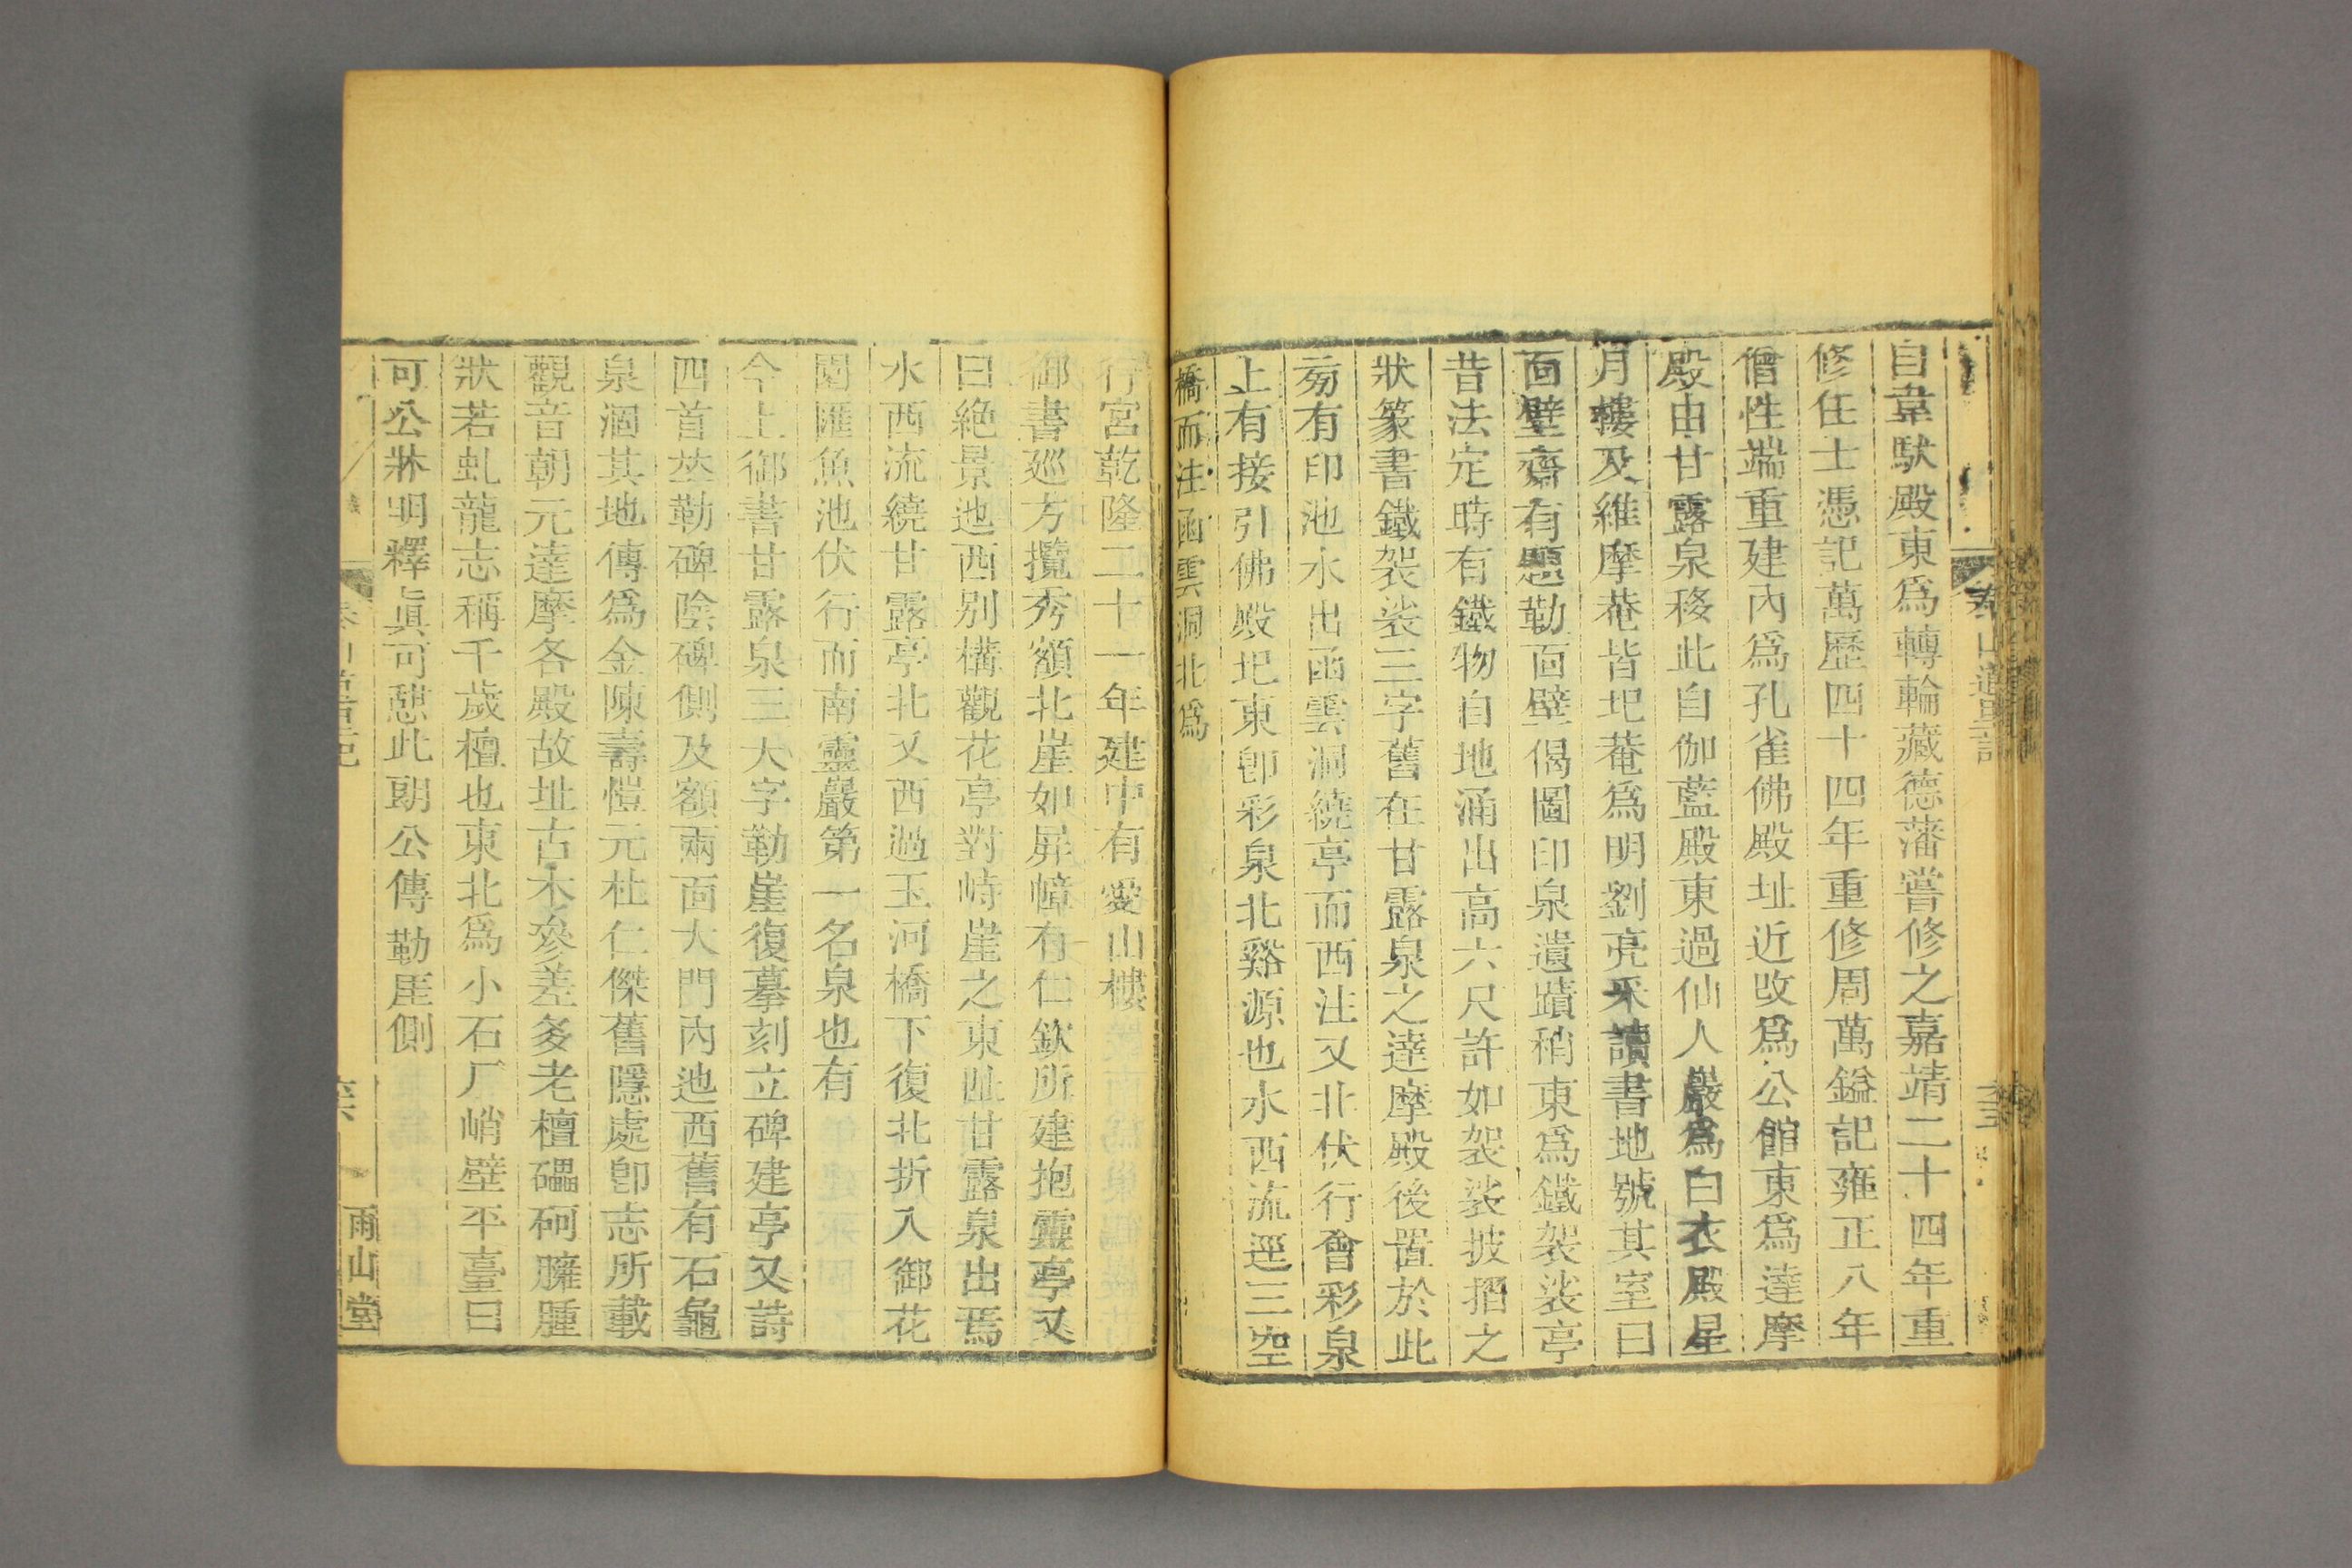 自韋馱殿東爲轉輪藏德藩嘗修之嘉靖二十四年重
修任士憑記萬歷四十四年重修周萬鎰記雍正八年
僧性端重建內爲孔雀佛殿址近改爲公館東爲達摩
殿由甘露泉移此自伽藍殿東過仙人巖爲白衣殿星
月樓及維摩菴皆圯菴爲明劉亮采讀書地號其室曰
面壁齋有題勒面壁偈圖印泉遺蹟稍東爲鐵袈裟亭
昔法定時有鐵物自地涌出高六尺許如袈裟披摺之
狀篆書鐵袈裟三字舊在甘露泉之達摩殿後置於此
㫄有印池水出函雲洞繞亭而西注又北伏行會彩泉
上有接引佛殿圯東卽彩泉北谿源也水西流逕三空
橋而注函雲洞北爲
行宮乾隆二十一年建中有愛山樓
御書巡方攬秀額北崖如屛幛有仁欽所建抱靈亭又
曰絶景池西別構觀花亭對峙崖之東阯甘露泉出焉
水西流繞甘露亭北又西過玉河橋下復北折入御花
園匯魚池伏行而南靈巖第一名泉也有
今上御書甘露泉三大字勒崖復摹刻立碑建亭又詩
四首並勒碑陰碑側及額兩面大門內池西舊有石龜
泉涸其地傳爲金陳壽愷元杜仁傑舊隱處卽志所載
觀音朝元達摩各殿故址古木參差多老檀礧砢臃腫
狀若虬龍志稱千歲檀也東北爲小石厂峭壁平臺曰
可公牀明釋眞可憩此朗公傳勒厓側
六
雨山堂